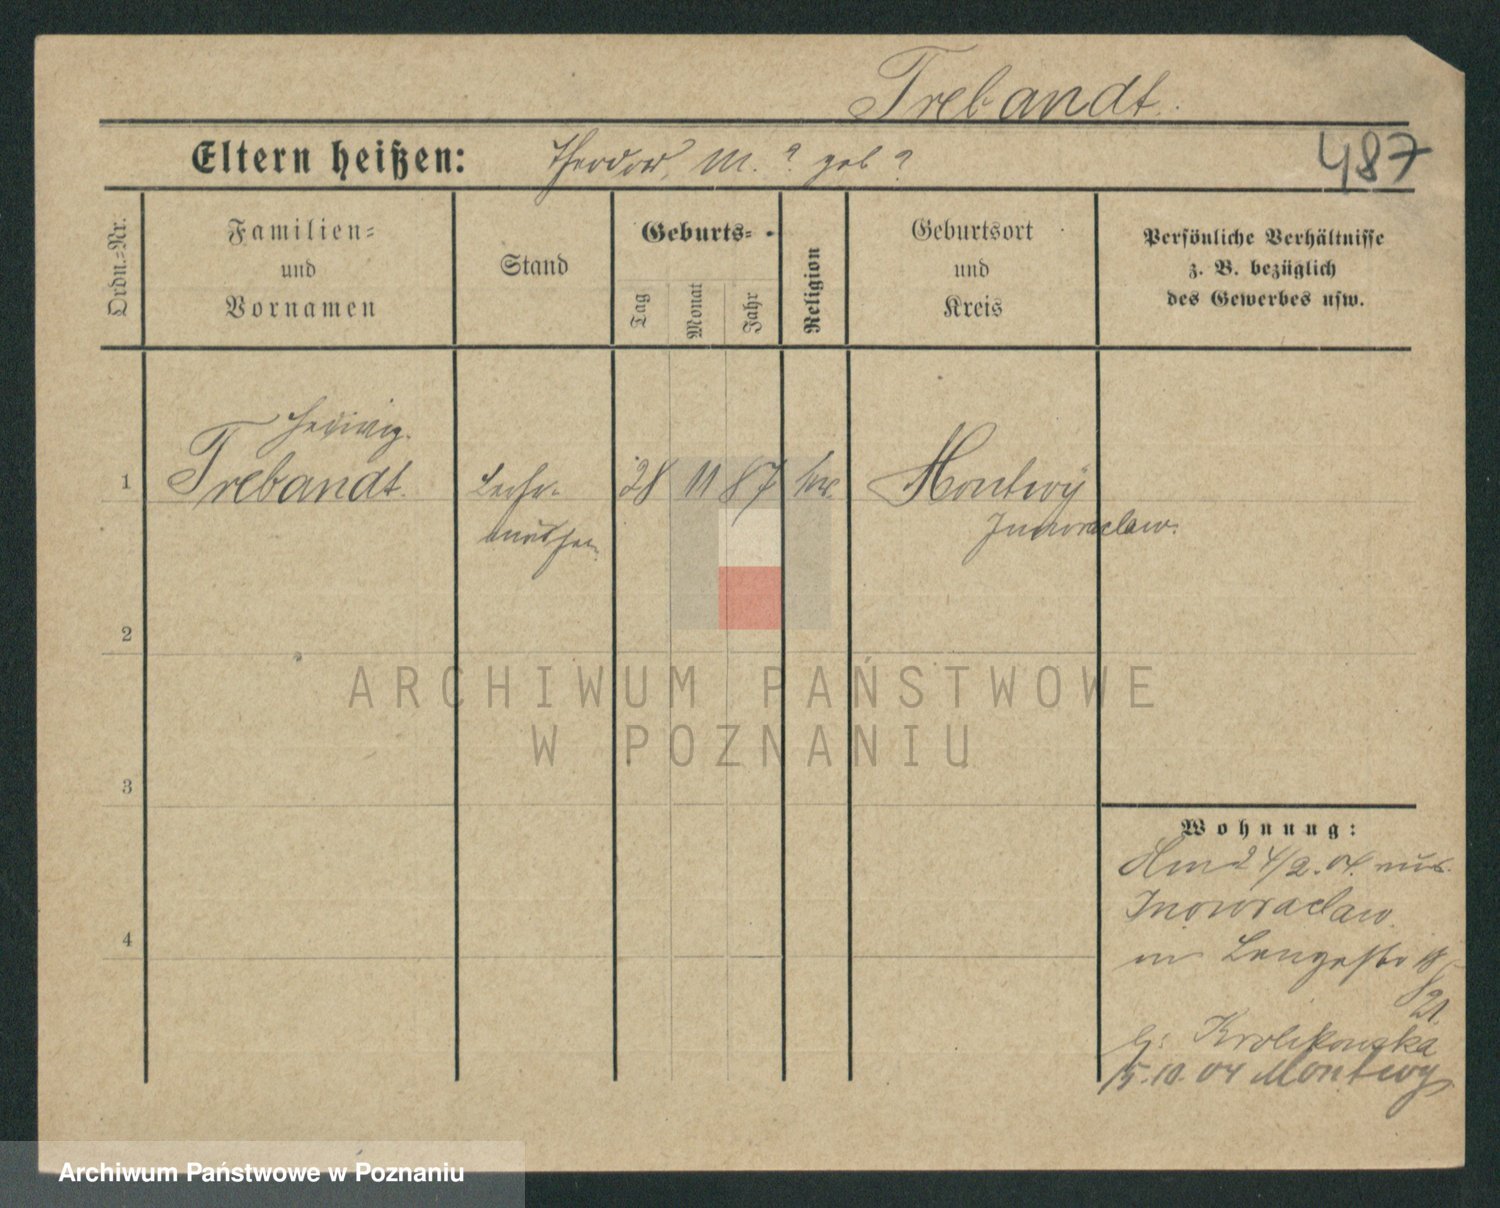 Trebandt.
Eltern heißen: Theodor, M. ? geb ?
487
Ordn.-Nr.
Familien-
und
Vornamen
Stand
Geburts-
Tag
Monat
Jahr
Religion
Geburtsort
und
Kreis
Persönliche Verhältnisse
z. B. bezüglich
des Gewerbes usw.
Hedwig.
1 Trebandt. 28 11 87 Montwy
Inowraclaw.
2
ARCHIWUM PAŃSTWOWE
W POZNANIU
3
Wohnung:
Am 24/2. 04. aus
Inowraclaw
4
in Langestr
21.
b: Krolikowska
15.10.04 Montwy
Archiwum Państwowe w Poznaniu